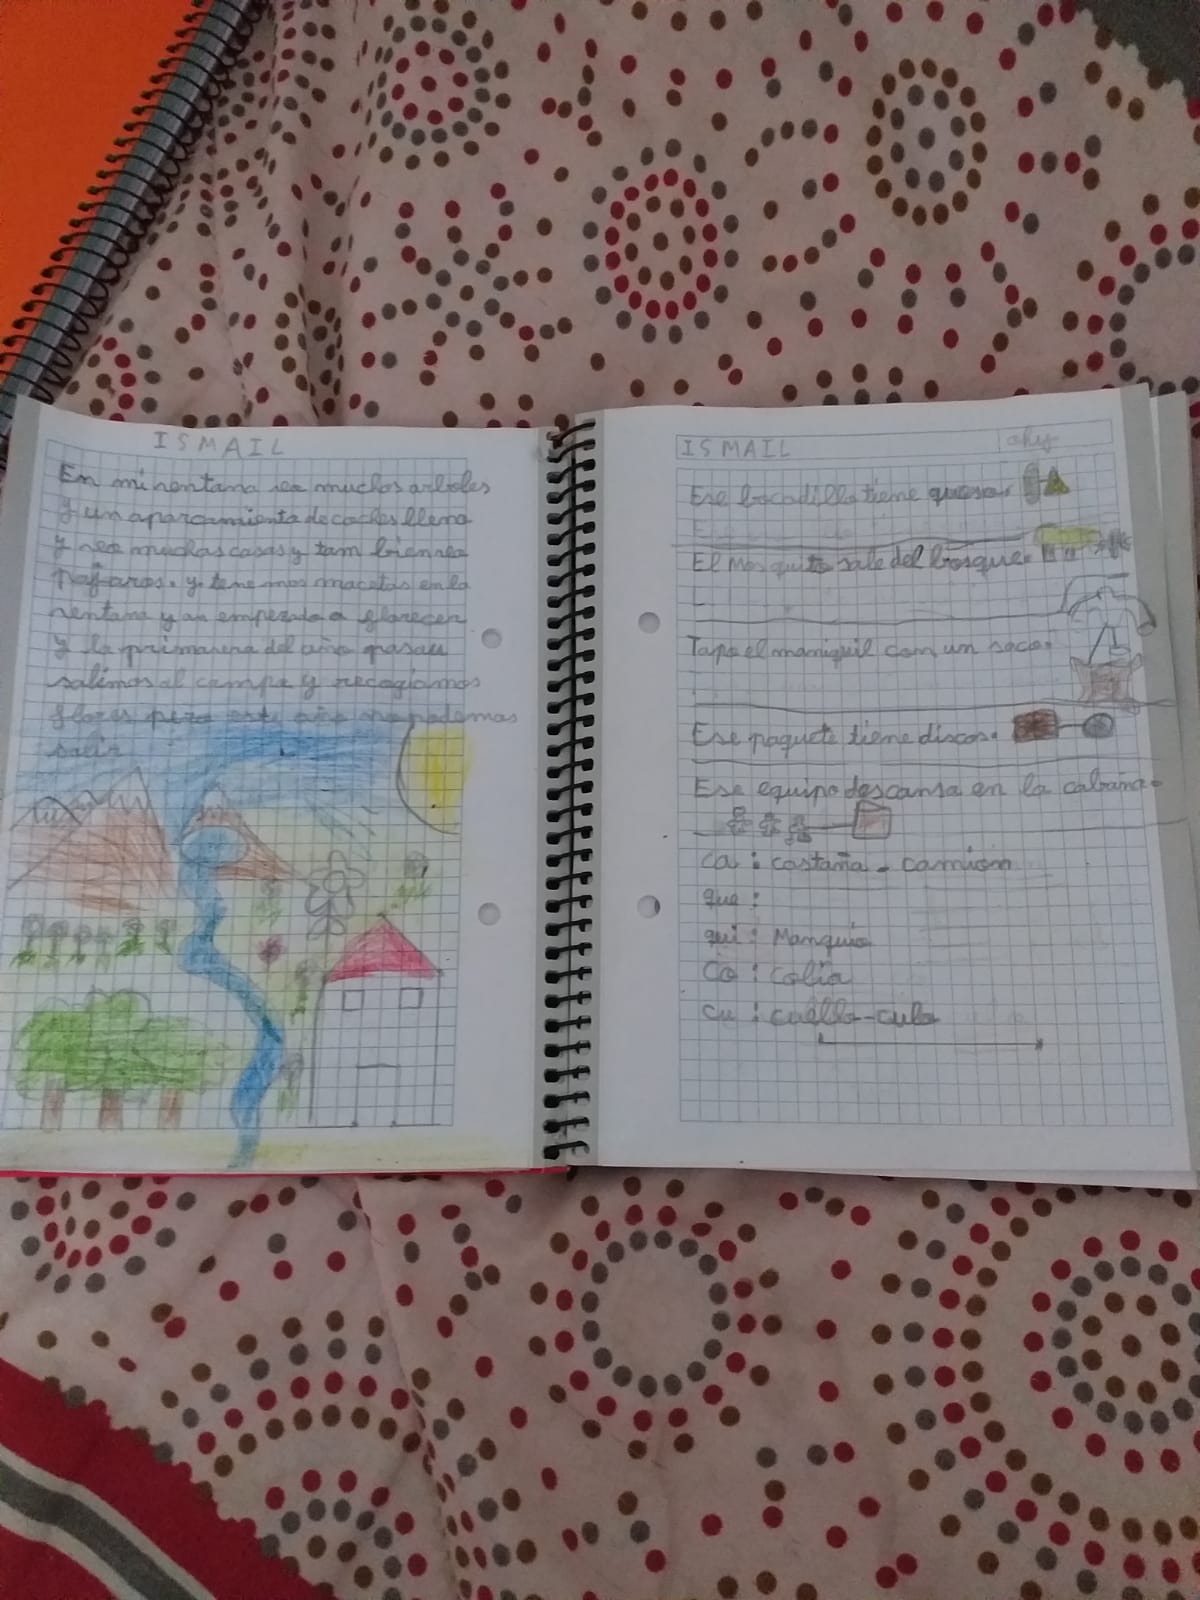 ISMAIL
En mi ventana veo muchos arboles
y un aparcamiento de coches lleno
y veo muchas casas y tam bien veo
pajaros. y tene mos macetas en la
ventana y an empezado a florecer
y la primavera del año pasau
salimos al campo y recogiamos
flores pero este año no podemos
salir
ISMAIL
Ese bocadillo tiene queso.
El Mosquito sale del bosque.
Tapo el maniquí con un saco.
Ese paquete tiene discos.
Ese equipo descansa en la cabaña.
ca : castaña - camion
que :
qui : Manquio
co : colia
cu : cuello-culo